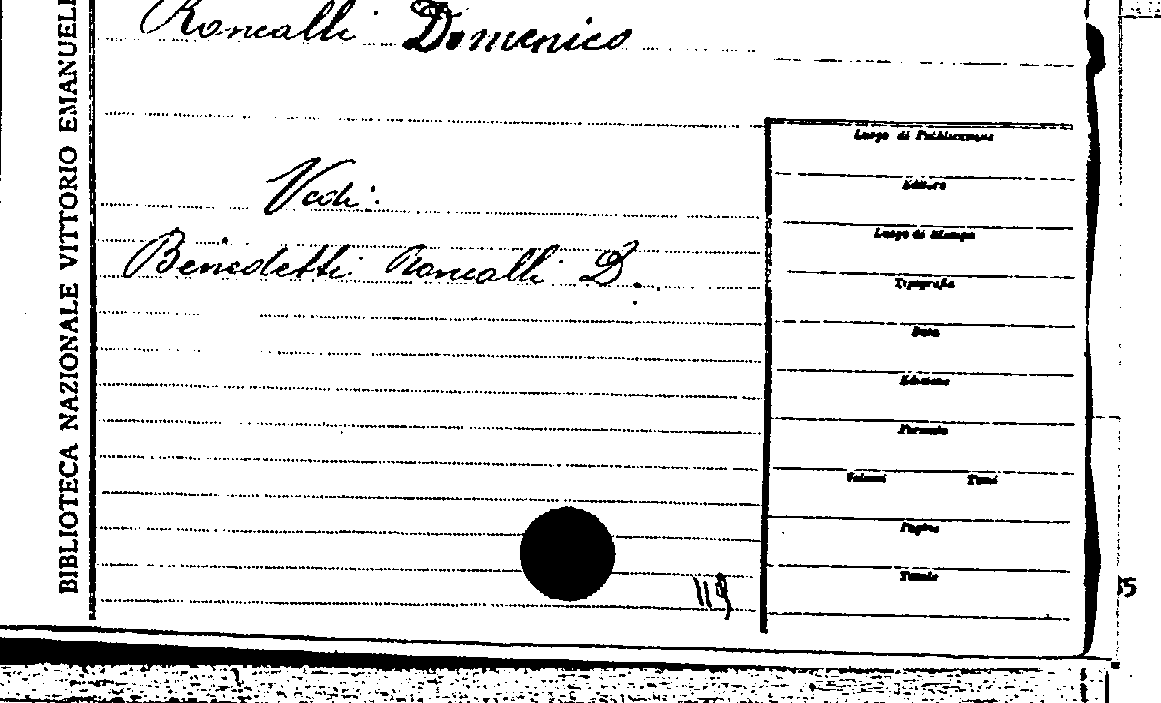 Roncalli Domenico
Vedi:
Benedetti Roncalli D.
119
BIBLIOTECA NAZIONALE VITTORIO EMANUELE
Luogo di Pubblicazione
Editore
Luogo di Stampa
Tipografia
Data
Edizione
Formato
Volumi Tomi
Pagine
Tavole